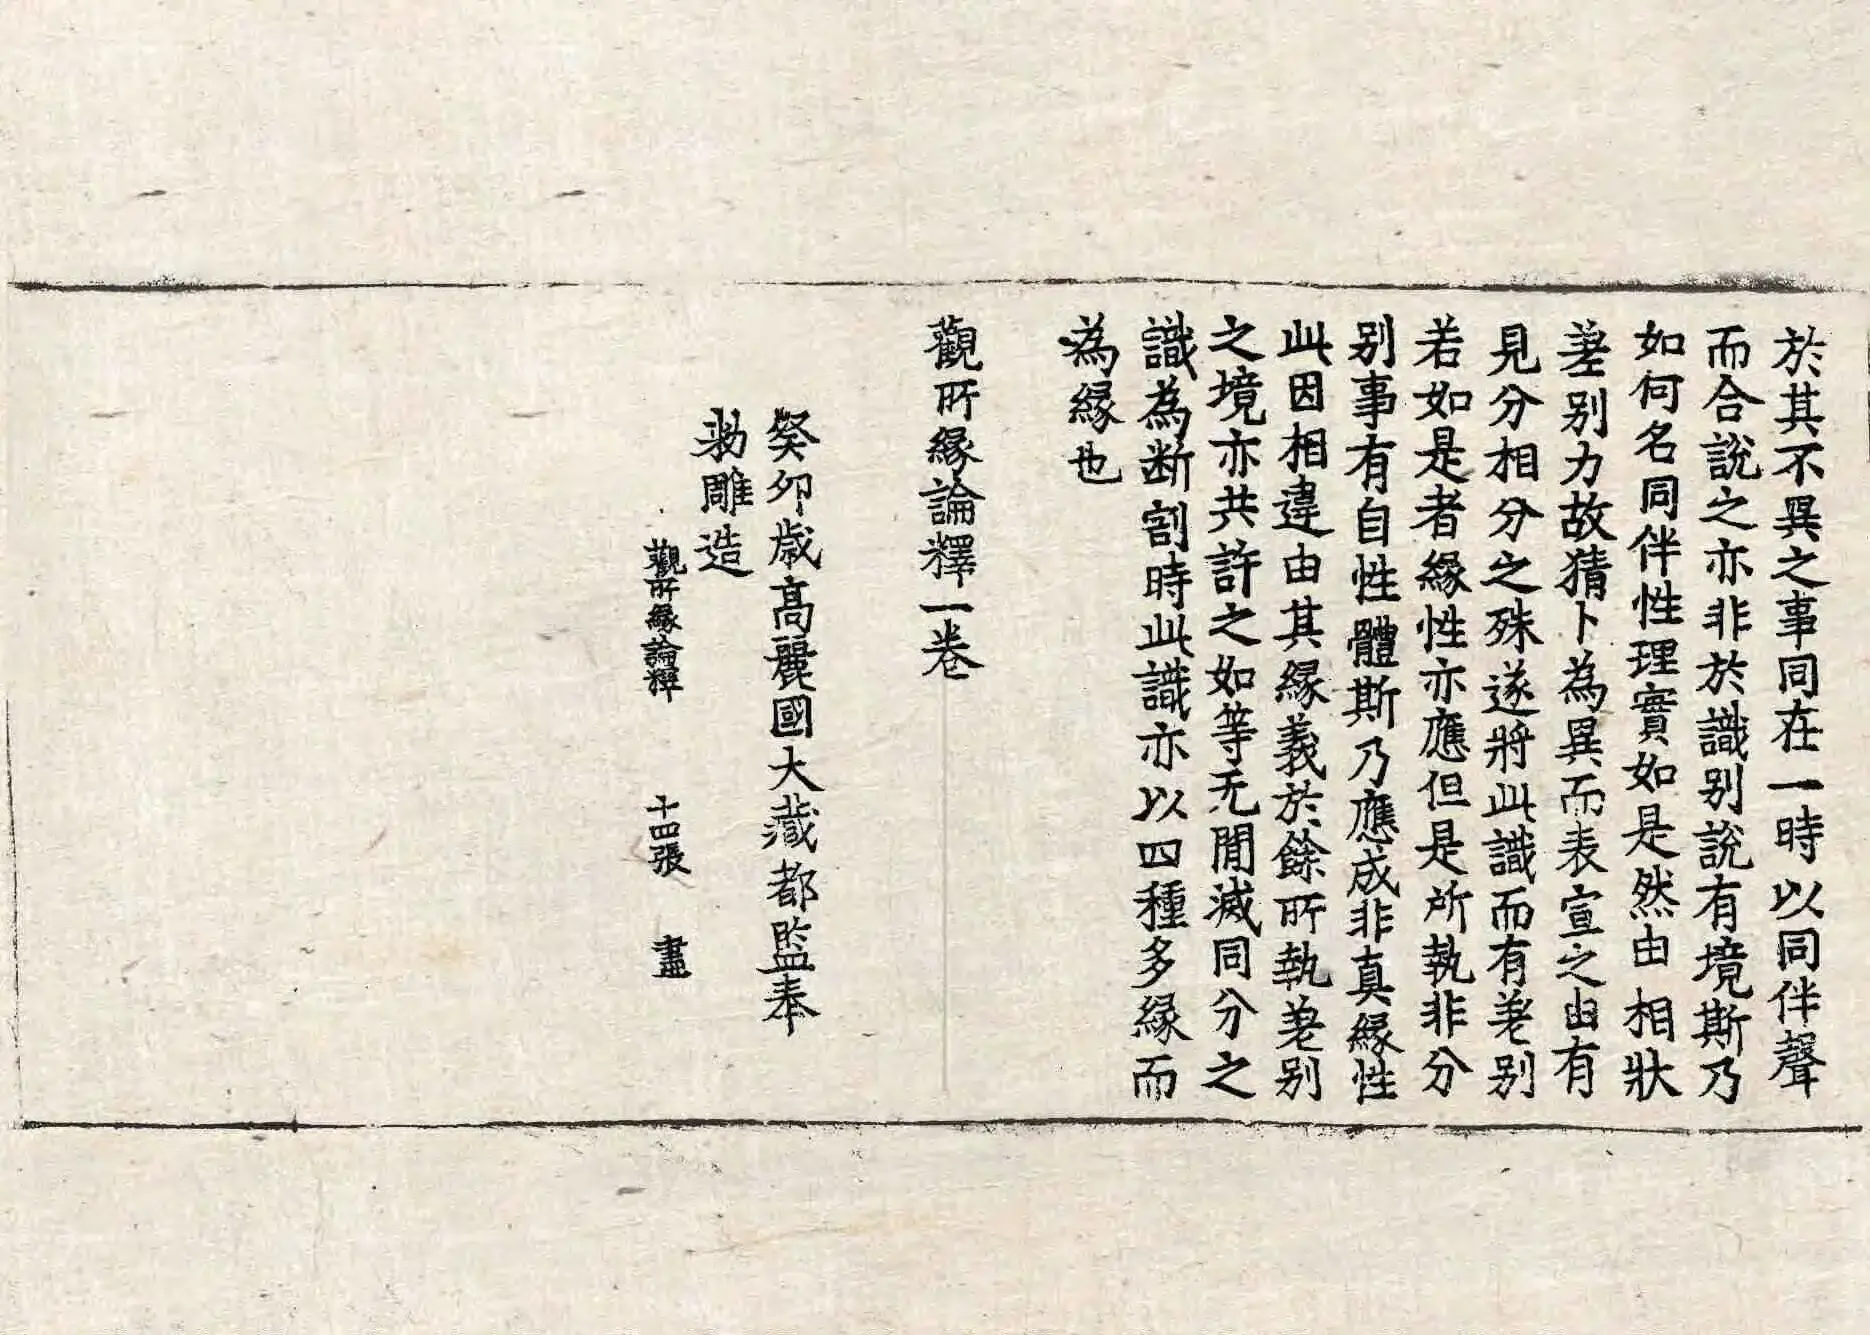 於其不異之事同在一時以同伴聲
而合說之亦非於識别說有境斯乃
如何名同伴性理實如是然由相狀
差别力故猜卜為異而表宣之由有
見分相分之殊遂將此識而有差别
若如是者緣性亦應但是所執非分
别事有自性體斯乃應成非真緣性
此因相違由其緣義於餘所執差别
之境亦共許之如等无閒滅同分之
識為断割時此識亦以四種多緣而
為緣也
觀所緣論釋一卷
癸卯歲高麗國大藏都監奉
勑雕造
觀所緣論釋 十四張 盡